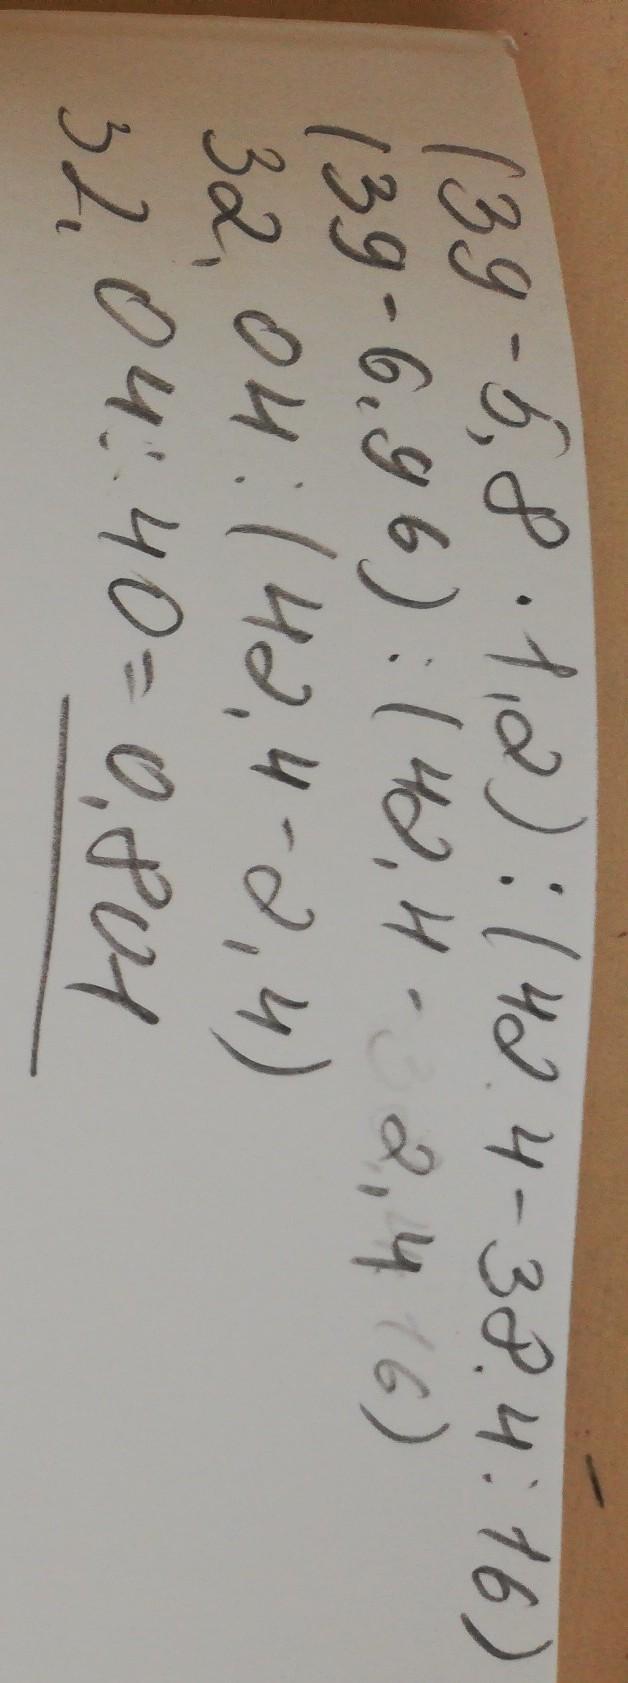 (39-5,8·1,2):(42.4-38.4:16)
(39-6,96):(42,4-2,4)
32,04:(42,4-2,4)
32,04:40=0,801